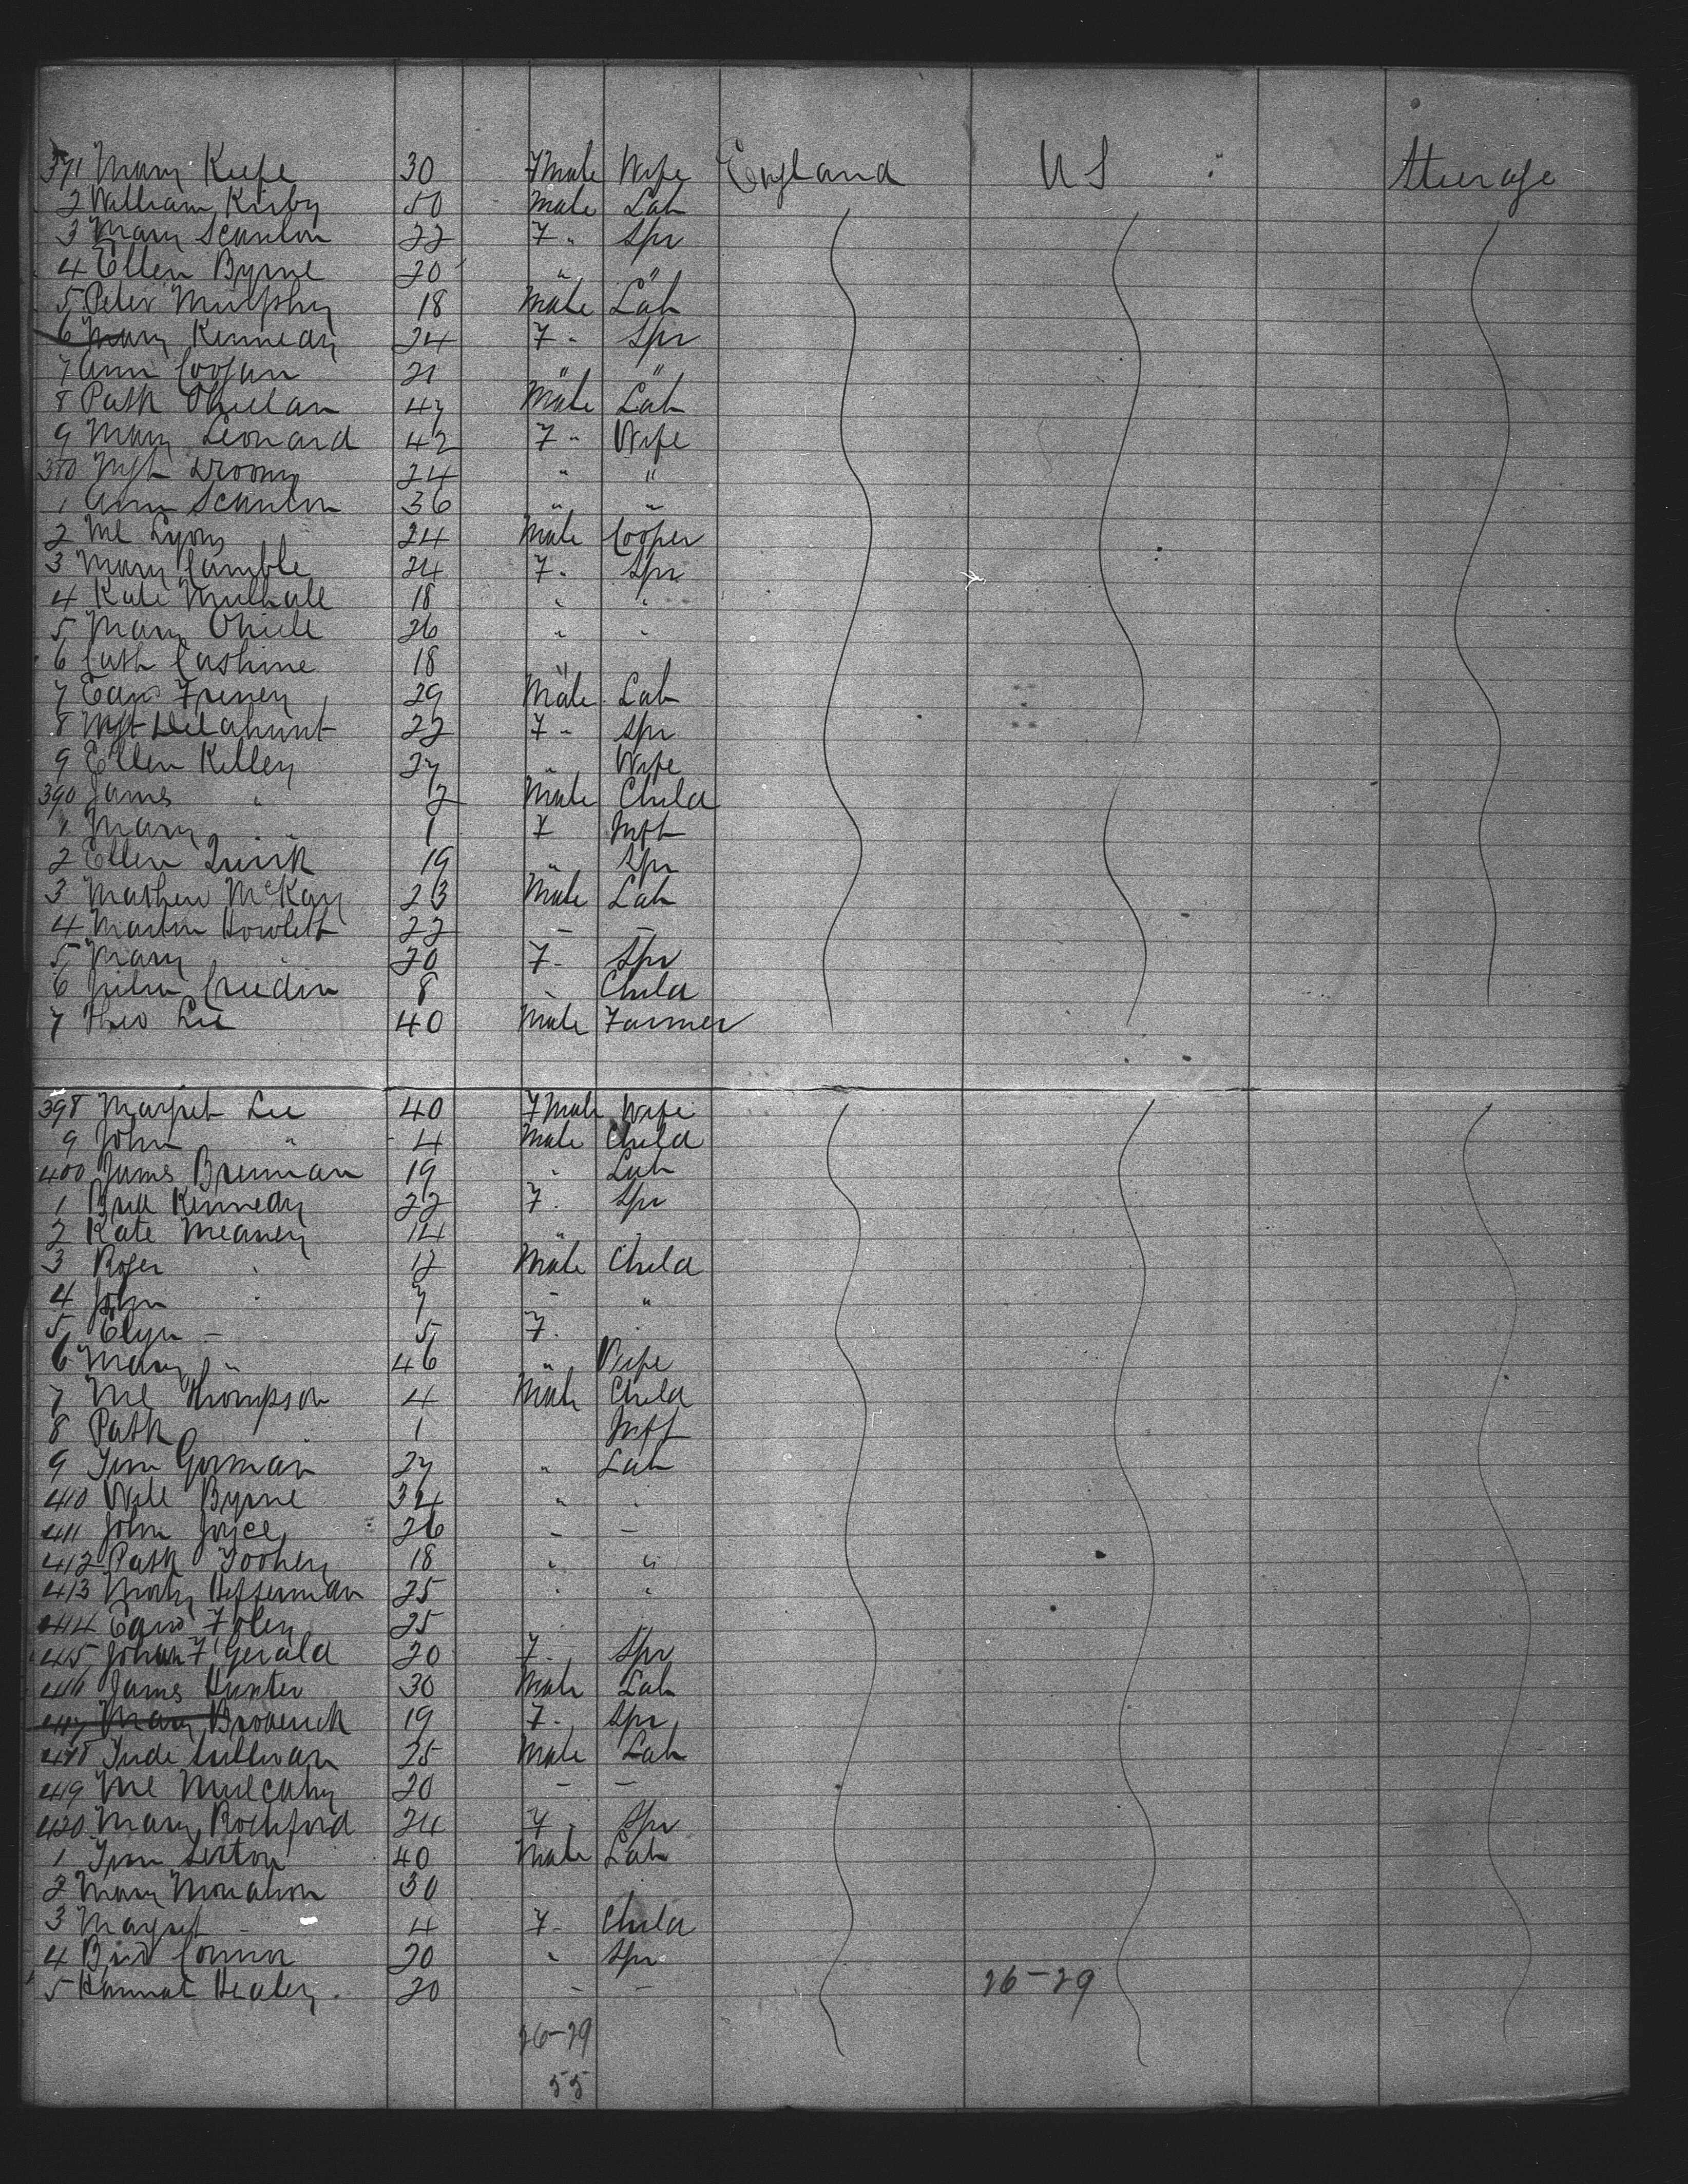 371 Mary Keefe 30 Fmale Wife England US Sterage
2 William Kirby 50 Male Lab
3 Mary Scanlon 22 F " Spr
4 Ellen Byrne 20 " "
5 Peter Murphy 18 Male Lab
6 Mary Kennedy 24 F " Spr
7 Ann Coogan 21 " "
8 Patk Whelan 47 Male Lab
9 Mary Leonard 42 F " Wife
380 24 " "
1 Ann Scanlon 36 " "
2 Ml Lyons 24 Male Cooper
3 Mary Camble 24 F " Spr
4 Kate Mulhall 18 " "
5 Mary 26 " "
6 Cath Cashine 18 "
7 Edwd Freney 29 Male Lab
8 Mgt Delahunt 22 F " Spr
9 Ellen Kelley 27 " Wife
390 James " 2 Male Child
1 Mary " 1 F Inft
2 Ellen Quirk 19 " Spr
3 Mathew McKay 23 Male Lab
4 Martin Howlett 22 - -
5 Mary 20 F - Spr
6 Julia Creedin 8 " Child
7 Theo Lee 40 Male Farmer
398 Margret Lee 40 Fmale Wife
9 John " 4 Male Child
400 James Brennan 19 " Lab
1 Brid Kennedy 22 F " Spr
2 Kate Meaney 14 " "
3 Roger " 12 Male Child
4 John " 7 - "
5 Elyn - 5 F "
6 Mary " 46 " Wife
7 Ml Thompson 4 Male Child
8 Patk 1 Inft
9 Tim Gorman 27 " Lab
410 Will Byrne 34 " "
411 John Joyce 26 - -
412 Patk Toohey 18 " "
413 Morty Hefferman 25 " "
414 Edwd Foley 25 " "
415 Johan F'Gerald 20 F " Spr
416 James Hunter 30 Male Lab
417 Mary Broderick 19 F " Spr
418 Jude Sullivan 25 Male Lab
419 Ml Mulcahy 20 - -
420 Mary Rochford 24 F " Spr
1 Tim Sexton 40 Male Lab
2 Mary Monahon 30
3 Margret - 4 F - Child
4 Brid Connor 20 " Spr
5 Hannat Healey 20 - - 26-29
26-29
55